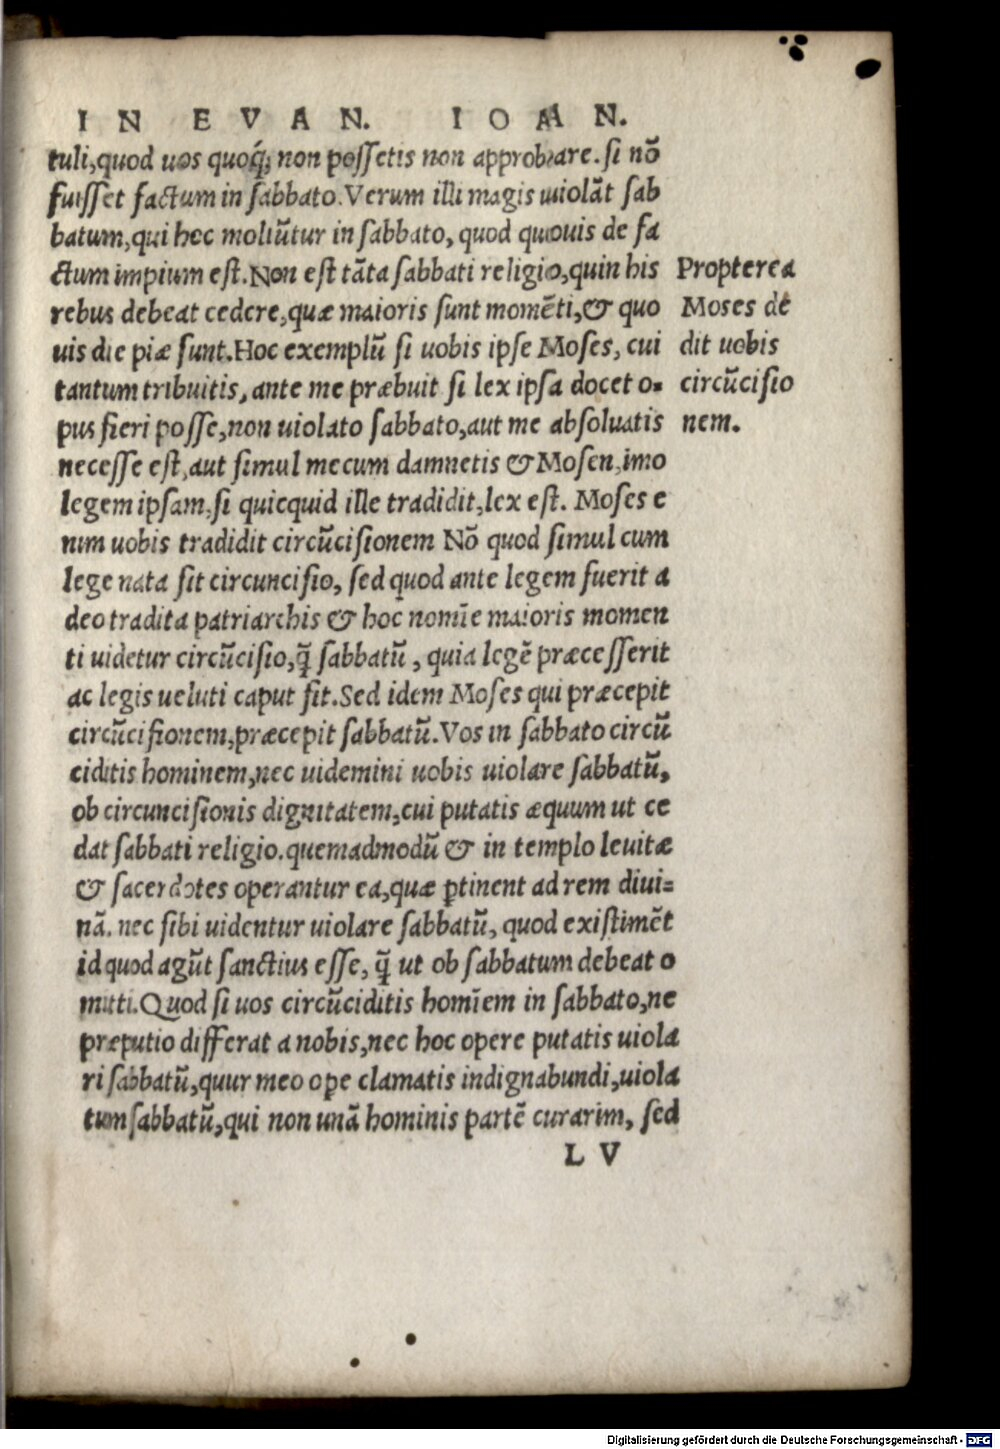 IN EVAN. IOAN.
tuli,quod uos quoq́; non possetis non approbare. si nō
fuisset factum in sabbato. Verum illi magis uiolāt sab
batum,qui hoc moliūtur in sabbato, quod quouis de fa
ctum impium est. Non est tāta sabbati religio,quin his
rebus debeat cedere,quæ maioris sunt momēti,& quo
uis die piæ sunt. Hoc exemplū si uobis ipse Moses, cui
tantum tribuitis, ante me præbuit si lex ipsa docet o-
pus fieri posse,non uiolato sabbato,aut me absoluatis
necesse est,aut simul mecum damnetis & Mosen,imo
legem ipsam,si quicquid ille tradidit,lex est. Moses e
nim uobis tradidit circūcisionem Nō quod simul cum
lege nata sit circuncisio, sed quod ante legem fuerit a
deo tradita patriarchis & hoc nomīe maioris momen
ti uidetur circūcisio,q̄ sabbatū, quia legē præcesserit
ac legis ueluti caput sit. Sed idem Moses qui præcepit
circūcisionem,præcepit sabbatū. Vos in sabbato circū
ciditis hominem,nec uidemini uobis uiolare sabbatū,
ob circuncisionis dignitatem,cui putatis æquum ut ce
dat sabbati religio. quemadmodū & in templo leuitæ
& sacerdotes operantur ea,quæ ꝑtinent ad rem diui=
nā. nec sibi uidentur uiolare sabbatū, quod existimēt
id quod agūt sanctius esse, q̄ ut ob sabbatum debeat o
mitti. Quod si uos circūciditis homīem in sabbato,ne
præputio differat a nobis,nec hoc opere putatis uiola
ri sabbatū,quur meo oꝑe clamatis indignabundi,uiola
tum sabbatū,qui non unā hominis partē curarim, sed
L V
Propterea
Moses de
dit uobis
circūcisio
nem.
Digitalisierung gefördert durch die Deutsche Forschungsgemeinschaft - DFG